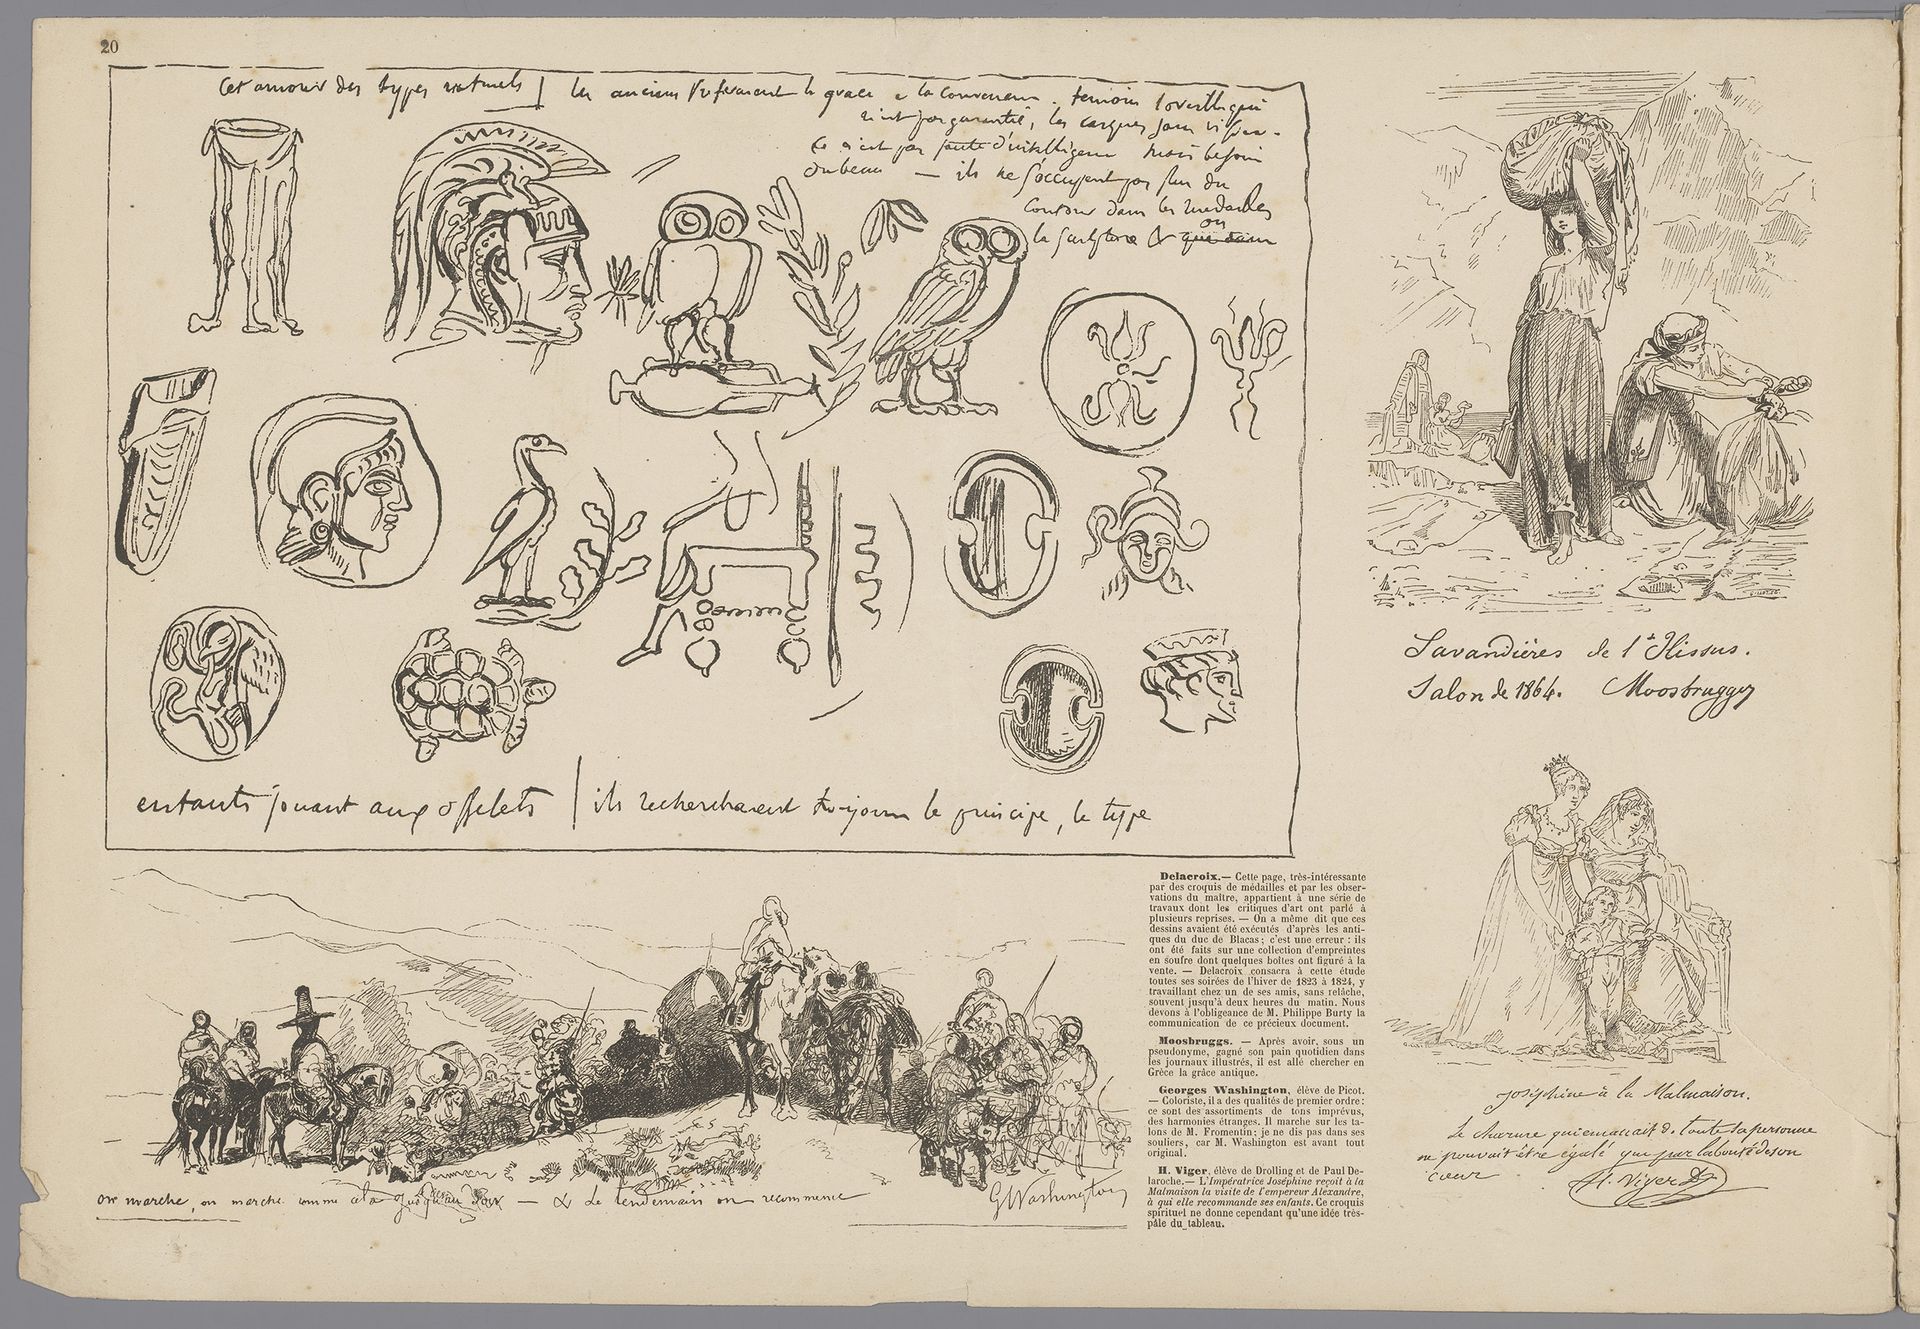 20
Cet amour des types naturels | les anciens préféraient la grace a la convenance . temoin l'oreille qui
n'est pas garantie, les casques sans visière.
Ce n'est pas faute d'intelligence mais besoin
du beau — ils ne s'occupent pas plus du
contour dans les medailles
ou
la sculpture &
enfants jouant aux osselets | ils recherchaient toujours le principe, le type
Lavandières de l'Ilissus.
Salon de 1864. Moosbrugger
Delacroix. — Cette page, très-intéressante
par des croquis de médailles et par les obser-
vations du maître, appartient à une série de
travaux dont les critiques d'art ont parlé à
plusieurs reprises. — On a même dit que ces
dessins avaient été exécutés d'après les anti-
ques du duc de Blacas ; c'est une erreur : ils
ont été faits sur une collection d'empreintes
en soufre dont quelques boîtes ont figuré à la
vente. — Delacroix consacra à cette étude
toutes ses soirées de l'hiver de 1823 à 1824, y
travaillant chez un de ses amis, sans relâche,
souvent jusqu'à deux heures du matin. Nous
devons à l'obligeance de M. Philippe Burty la
communication de ce précieux document.
Moosbruggs. — Après avoir, sous un
pseudonyme, gagné son pain quotidien dans
les journaux illustrés, il est allé chercher en
Grèce la grâce antique.
Georges Washington, élève de Picot.
— Coloriste, il a des qualités de premier ordre :
ce sont des assortiments de tons imprévus,
des harmonies étranges. Il marche sur les ta-
lons de M. Fromentin ; je ne dis pas dans ses
souliers, car M. Washington est avant tout
original.
H. Viger, élève de Drolling et de Paul De-
laroche. — L'Impératrice Joséphine reçoit à la
Malmaison la visite de l'empereur Alexandre,
à qui elle recommande ses enfants. Ce croquis
spirituel ne donne cependant qu'une idée très-
pâle du tableau.
on marche, on marche comme cela jusqu'au soir — & le lendemain on recommence
GWashington
Joséphine à la Malmaison.
Le charme qui émanait de toute sa personne
ne pouvait être égalé que par la bonté de son
cœur H. Viger